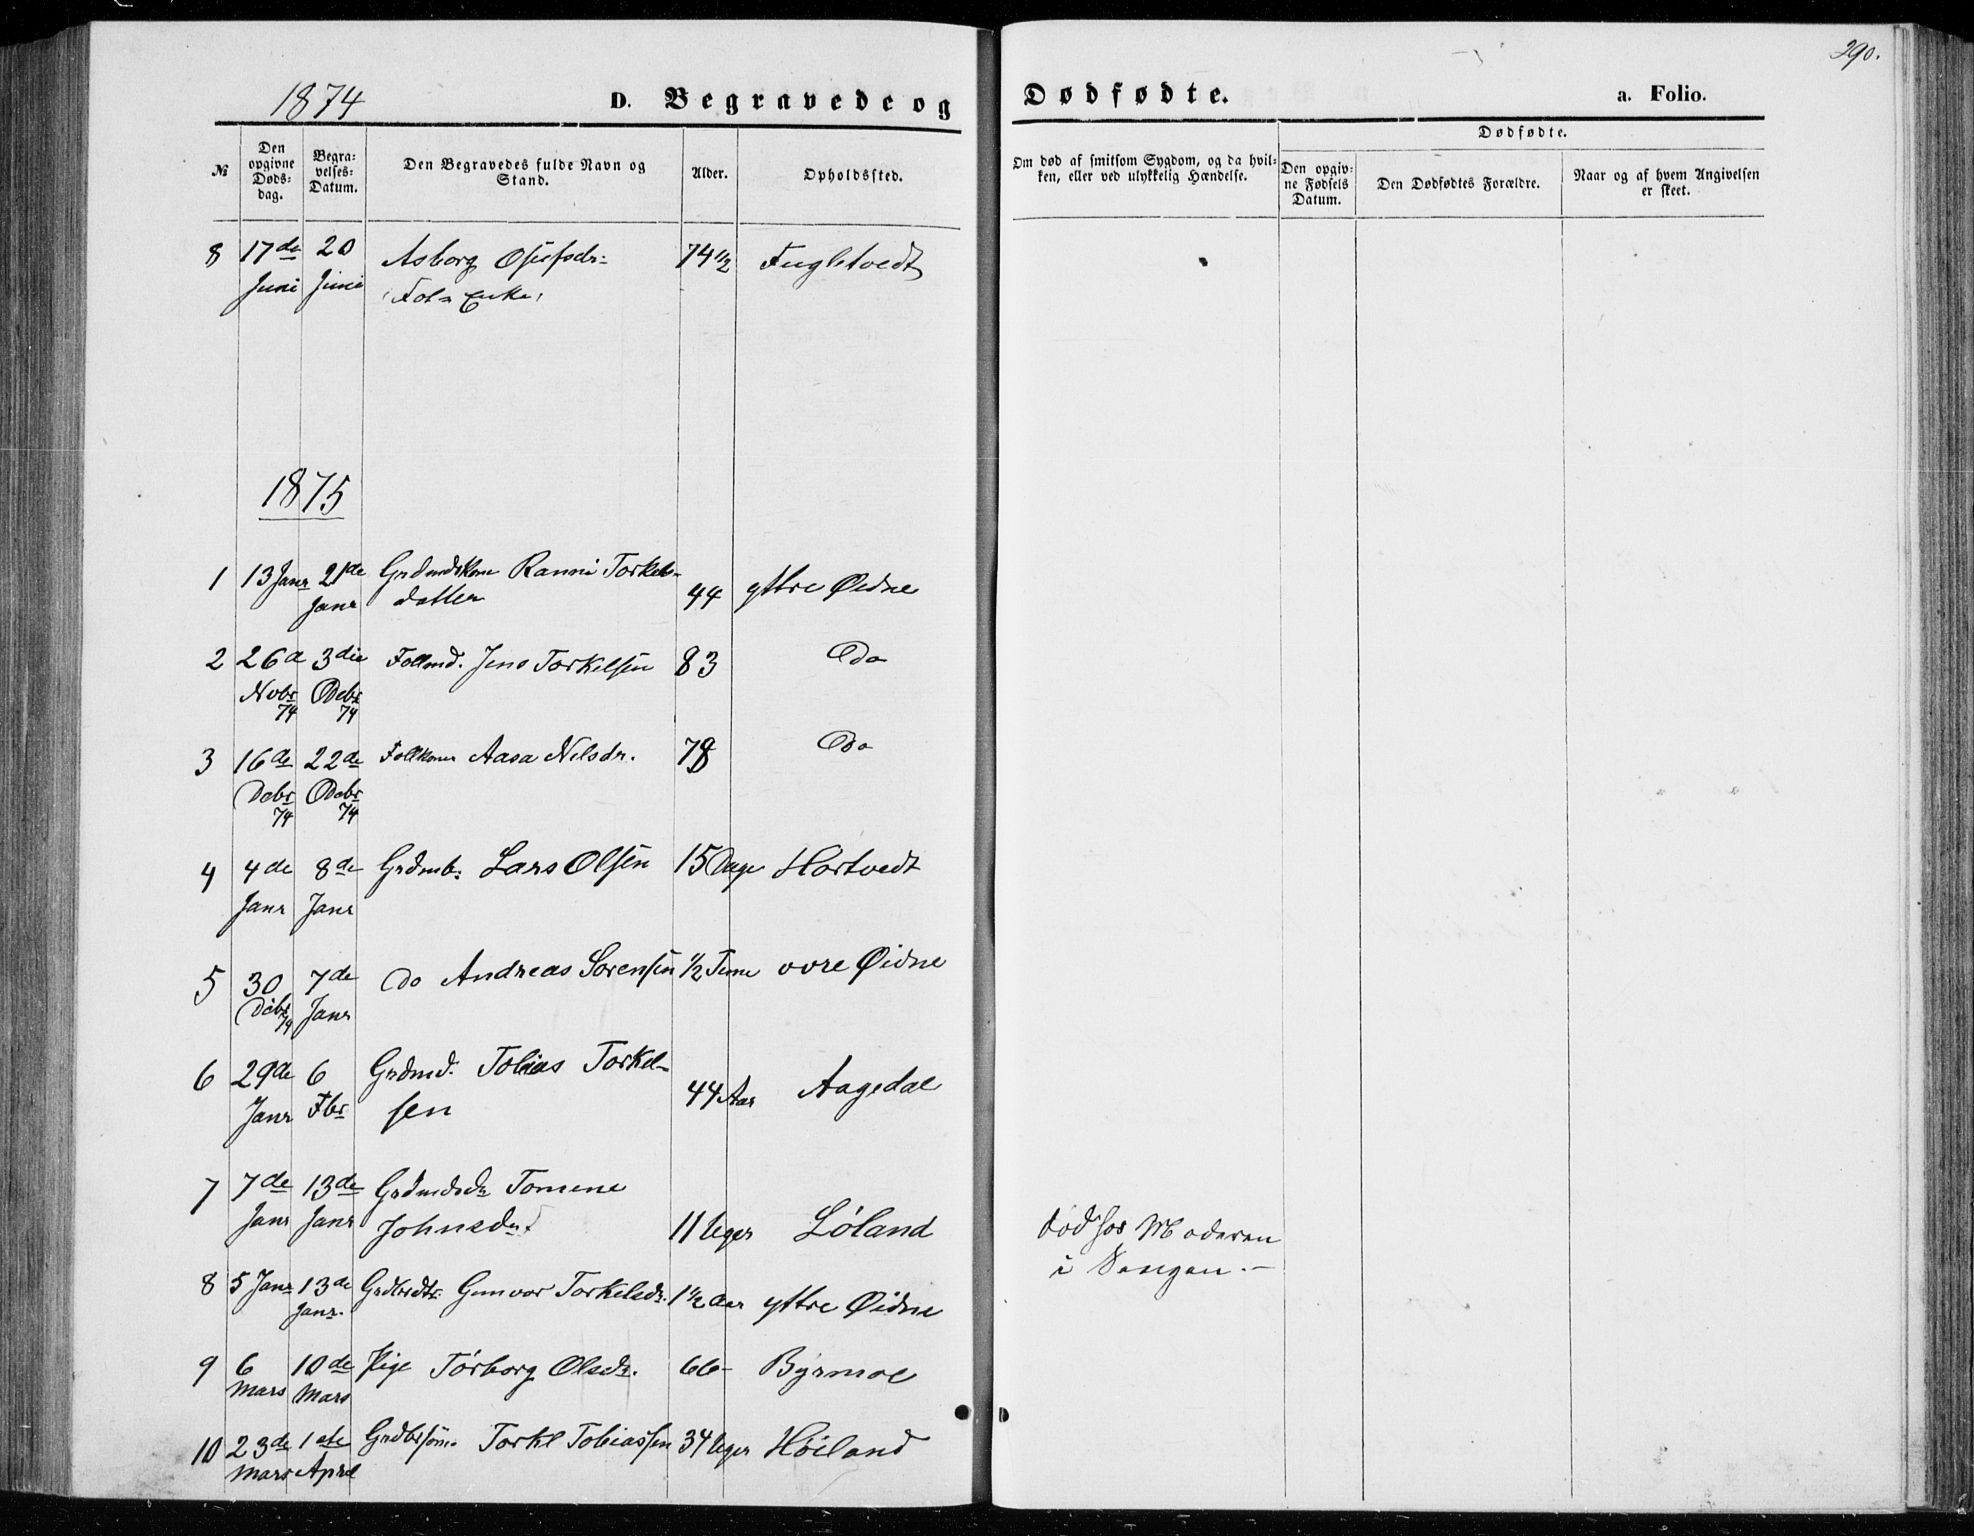 290.
1874
D. Begravede og Dødfødte.
a. Folio.
№
Den opgivne Døds-dag.
Begra-velses-Datum.
Den Begravedes fulde Navn og Stand.
Alder.
Opholdssted.
Om død af smitsom Sygdom, og da hvil-ken, eller ved ulykkelig Hændelse.
Dødfødte.
Den opgiv-ne Fødsels Datum.
Den Dødfødtes Forældre.
Naar og af hvem Angivelsen er skeet.
8 17de 20 Asborg 74 1/2 Fugletvedt
Juni Juni Enke
1875
1 13 Janr 21de Ranni Torkels-
Janr datter 44 yttre Øidne
2 26d 3die Jens Torkelsen 83 Do
Nobr Debr
74 74
3 16de 22de Aasa Nilsdr. 78 Do
Debr Debr
74 74
4 4de 8de Lars Olsen 15 Dage Hortvedt
Janr Janr
5 30 7de Do Andreas Sørensen 1/2 Time øvre Øidne
Debr Janr
74
6 29de 6 Grdmd. Tobias Torkel-
Janr Fbr sen 44 Aar Aagedal
7 7de 13de Tomine
Janr Janr Johnsdr 11 Uger Løland død hos Moderen
i Sengen.-
8 5 Janr 13de Gunvor Torkelsdr. 1 1/2 Aar yttre Øidne
Janr.
9 6 10de Pige Torborg Olsdr. 66- Byrmoe
Mars Mars
10 23de 1ste Torkel Tobiassen 34 Uger Høiland
Mars April